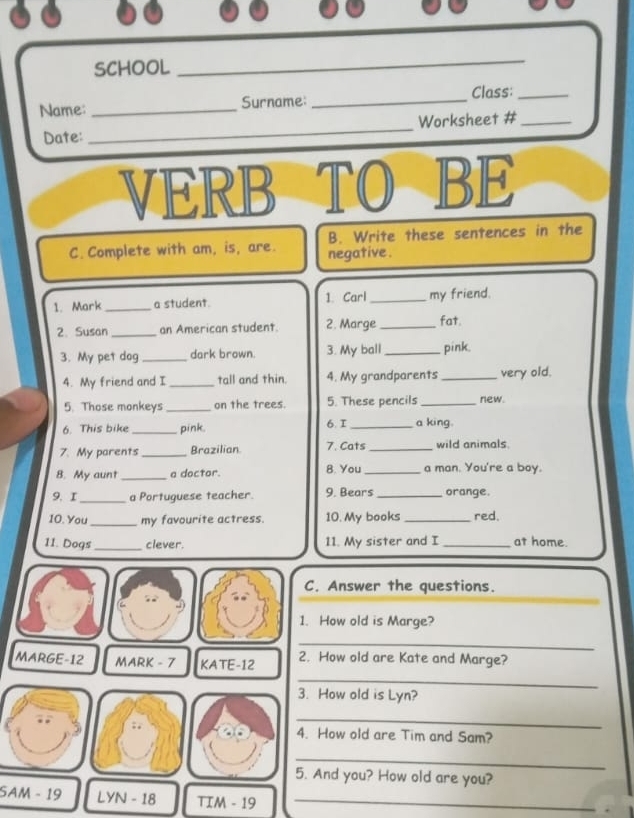 SCHOOL ____________
Name: ____________ Surname: ____________ Class: ______
Date: ____________ Worksheet # ______
VERB TO BE
C. Complete with am, is, are.
1. Mark ______ a student.
2. Susan ______ an American student.
3. My pet dog ______ dark brown.
4. My friend and I ______ tall and thin.
5. Those monkeys ______ on the trees.
6. This bike ______ pink.
7. My parents ______ Brazilian.
8. My aunt ______ a doctor.
9. I ______ a Portuguese teacher.
10. You ______ my favourite actress.
11. Dogs ______ clever.
B. Write these sentences in the
negative.
1. Carl ______ my friend.
2. Marge ______ fat.
3. My ball ______ pink.
4. My grandparents ______ very old.
5. These pencils ______ new.
6. I ______ a king.
7. Cats ______ wild animals.
8. You ______ a man. You're a boy.
9. Bears ______ orange.
10. My books ______ red.
11. My sister and I ______ at home.
MARGE-12
MARK - 7
KATE-12
SAM - 19
LYN - 18
TIM - 19
C. Answer the questions.
1. How old is Marge?
2. How old are Kate and Marge?
3. How old is Lyn?
4. How old are Tim and Sam?
5. And you? How old are you?